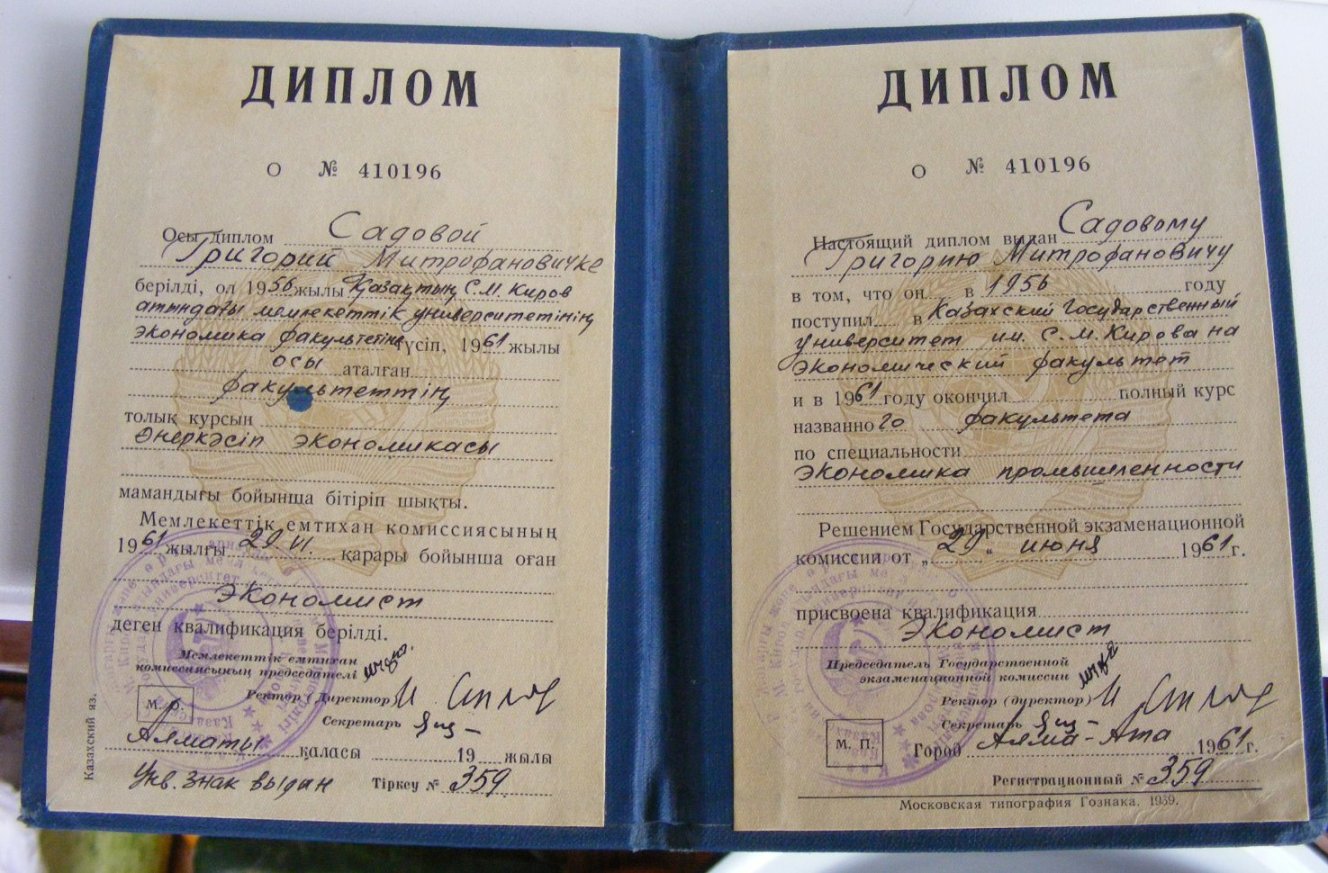 ДИПЛОМ
О № 410196
Осы диплом Садовой
Григорий Митрофановичке
берілді, ол 1956 жылы Қазақтың С.М. Киров
атындағы мемлекеттік университетінің
экономика факультетіне түсіп, 1961 жылы
осы аталған
факультеттің
толық курсын
Өнеркәсіп экономикасы
мамандығы бойынша бітіріп шықты.
Мемлекеттік емтихан комиссиясының
1961 жылғы 29.VI. қарары бойынша оған
экономист
деген квалификация берілді.
Мемлекеттік емтихан
комиссиясының председателі
Ректор (Директор)
Секретарь
М. О.
Алматы қаласы 19 жылы
Унв. знак выдан Тіркеу № 359
Казахский яз.
ДИПЛОМ
О № 410196
Настоящий диплом выдан Садовому
Григорию Митрофановичу
в том, что он в 1956 году
поступил в Казахский Государственный
университет им. С.М. Кирова на
экономический факультет
и в 1961 году окончил полный курс
названного факультета
по специальности
экономика промышленности
Решением Государственной экзаменационной
комиссии от „29" июня 1961 г.
присвоена квалификация
экономист
Председатель Государственной
экзаменационной комиссии
Ректор (директор)
Секретарь
М. П.
Город Алма-Ата 1961 г.
Регистрационный № 359
Московская типография Гознака. 1959.